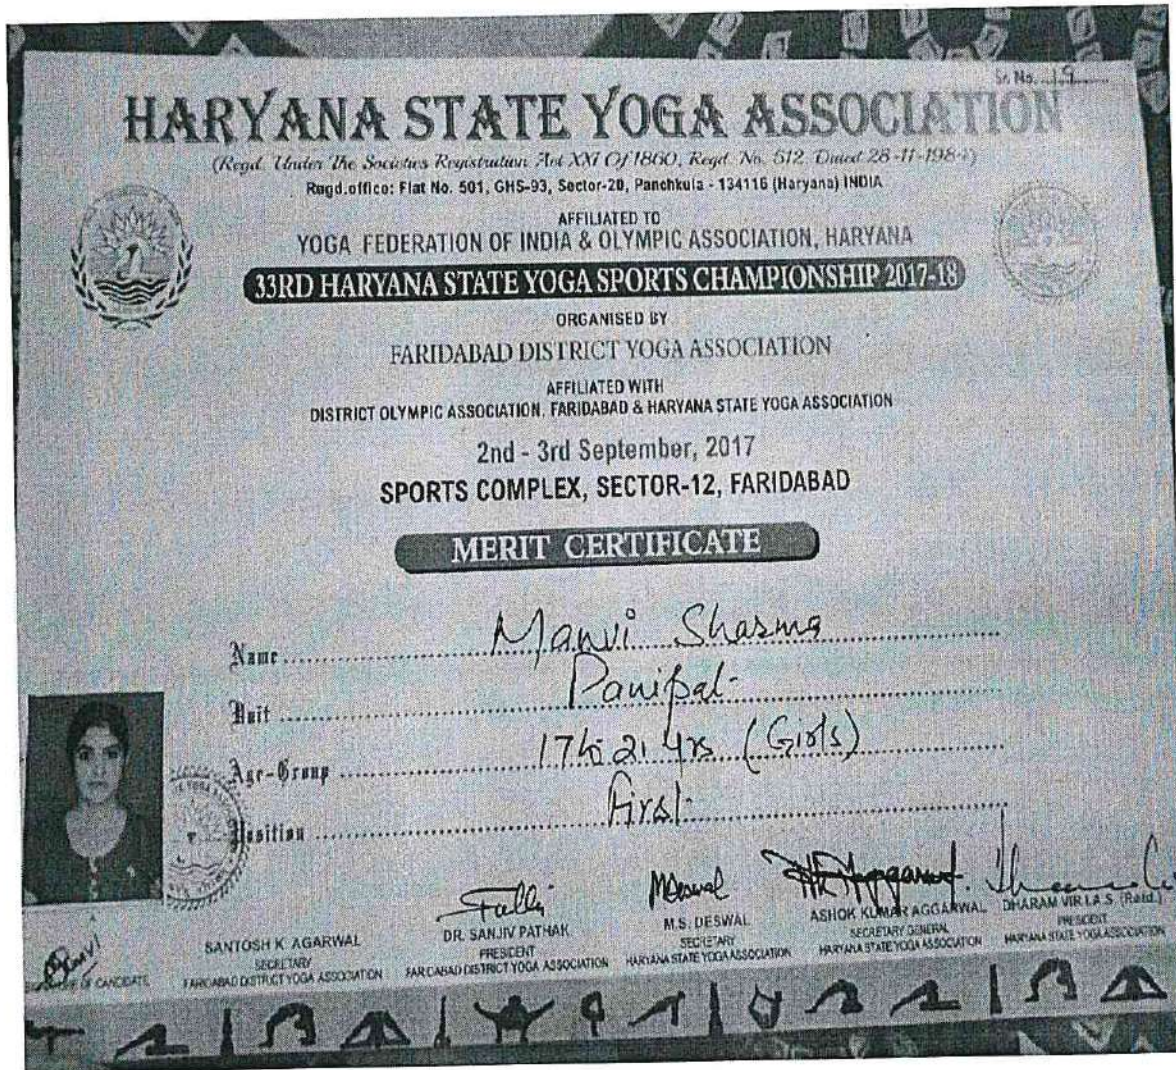 Sr. No. 19
HARYANA STATE YOGA ASSOCIATION
(Regd. Under The Societies Registration Act XXI Of 1860, Regd. No. 512 Dated 28-11-1984)
Regd.office: Flat No. 501, GHS-93, Sector-20, Panchkula - 134116 (Haryana) INDIA
AFFILIATED TO
YOGA FEDERATION OF INDIA & OLYMPIC ASSOCIATION, HARYANA
33RD HARYANA STATE YOGA SPORTS CHAMPIONSHIP 2017-18
ORGANISED BY
FARIDABAD DISTRICT YOGA ASSOCIATION
AFFILIATED WITH
DISTRICT OLYMPIC ASSOCIATION, FARIDABAD & HARYANA STATE YOGA ASSOCIATION
2nd - 3rd September, 2017
SPORTS COMPLEX, SECTOR-12, FARIDABAD
MERIT CERTIFICATE
Name Manvi Sharma
Unit Panipat
Age-Group 17 to 21 yrs (Girls)
Position First
SANTOSH K. AGARWAL
SECRETARY
FARIDABAD DISTRICT YOGA ASSOCIATION
DR. SANJIV PATHAK
PRESIDENT
FARIDABAD DISTRICT YOGA ASSOCIATION
M.S. DESWAL
SECRETARY
HARYANA STATE YOGA ASSOCIATION
ASHOK KUMAR AGGARWAL
SECRETARY GENERAL
HARYANA STATE YOGA ASSOCIATION
DHARAM VIR I.A.S. (Retd.)
PRESIDENT
HARYANA STATE YOGA ASSOCIATION
SIGNATURE OF CANDIDATE